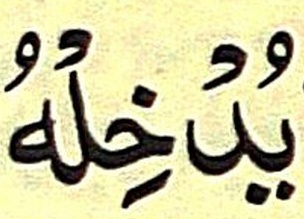 يُدْخِلْهُ